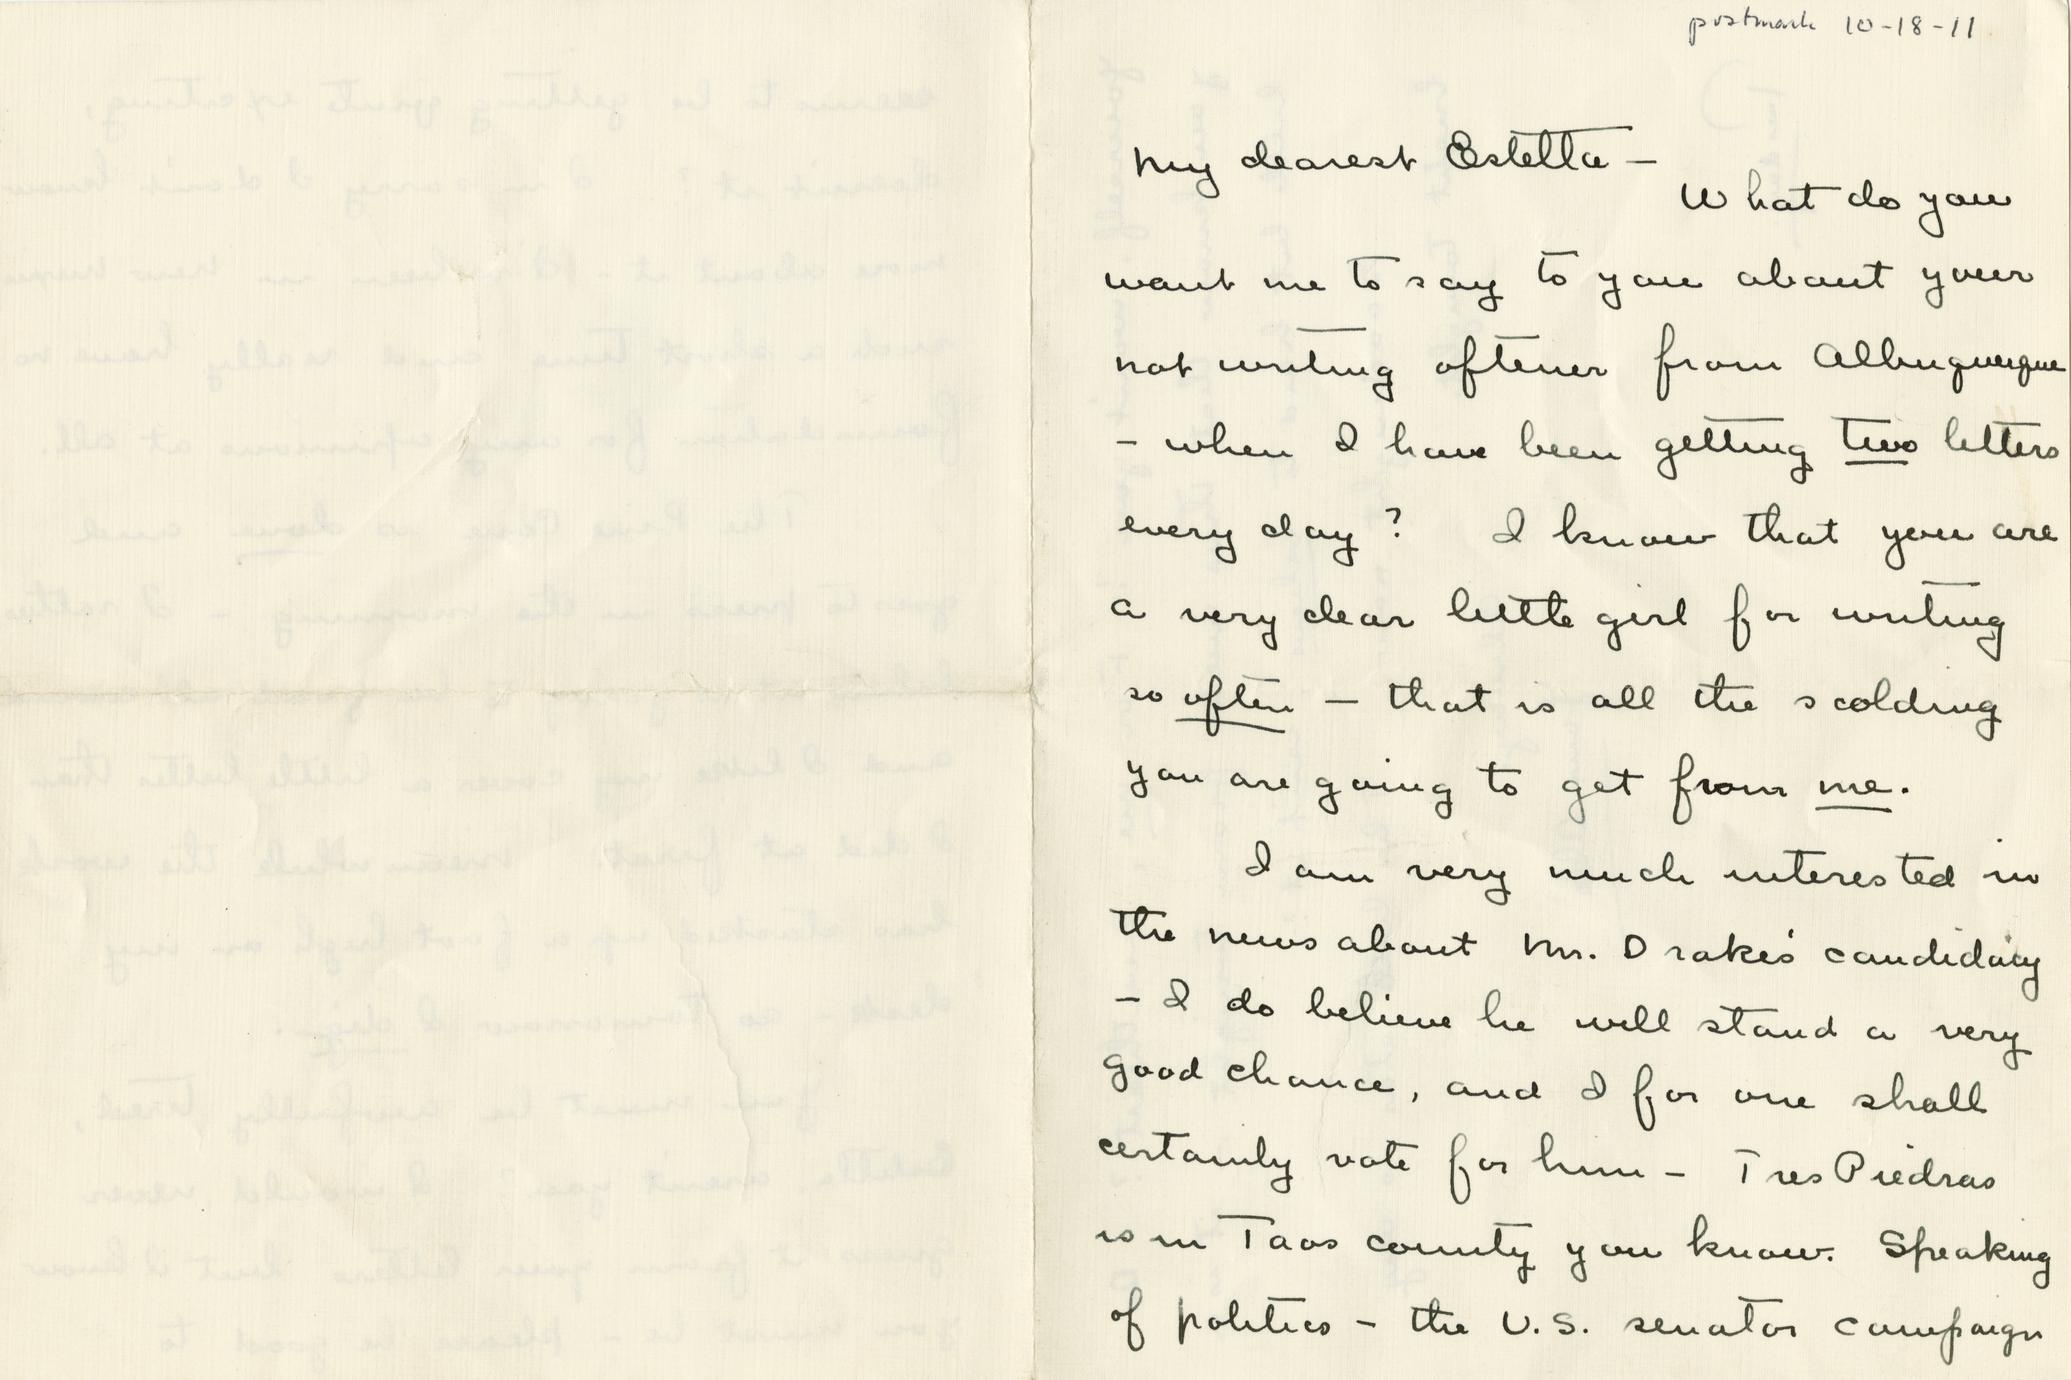 postmark 10-18-11
My dearest Estella —
What do you
want me to say to you about your
not writing oftener from Albuquerque
- when I have been getting two letters
every day? I know that you are
a very dear little girl for writing
so often — that is all the scolding
you are going to get from me.
I am very much interested in
the news about Mr. Drake's candidacy
- I do believe he will stand a very
good chance, and I for one shall
certainly vote for him - Tres Piedras
is in Taos county you know. Speaking
of politics - the U.S. senator campaign